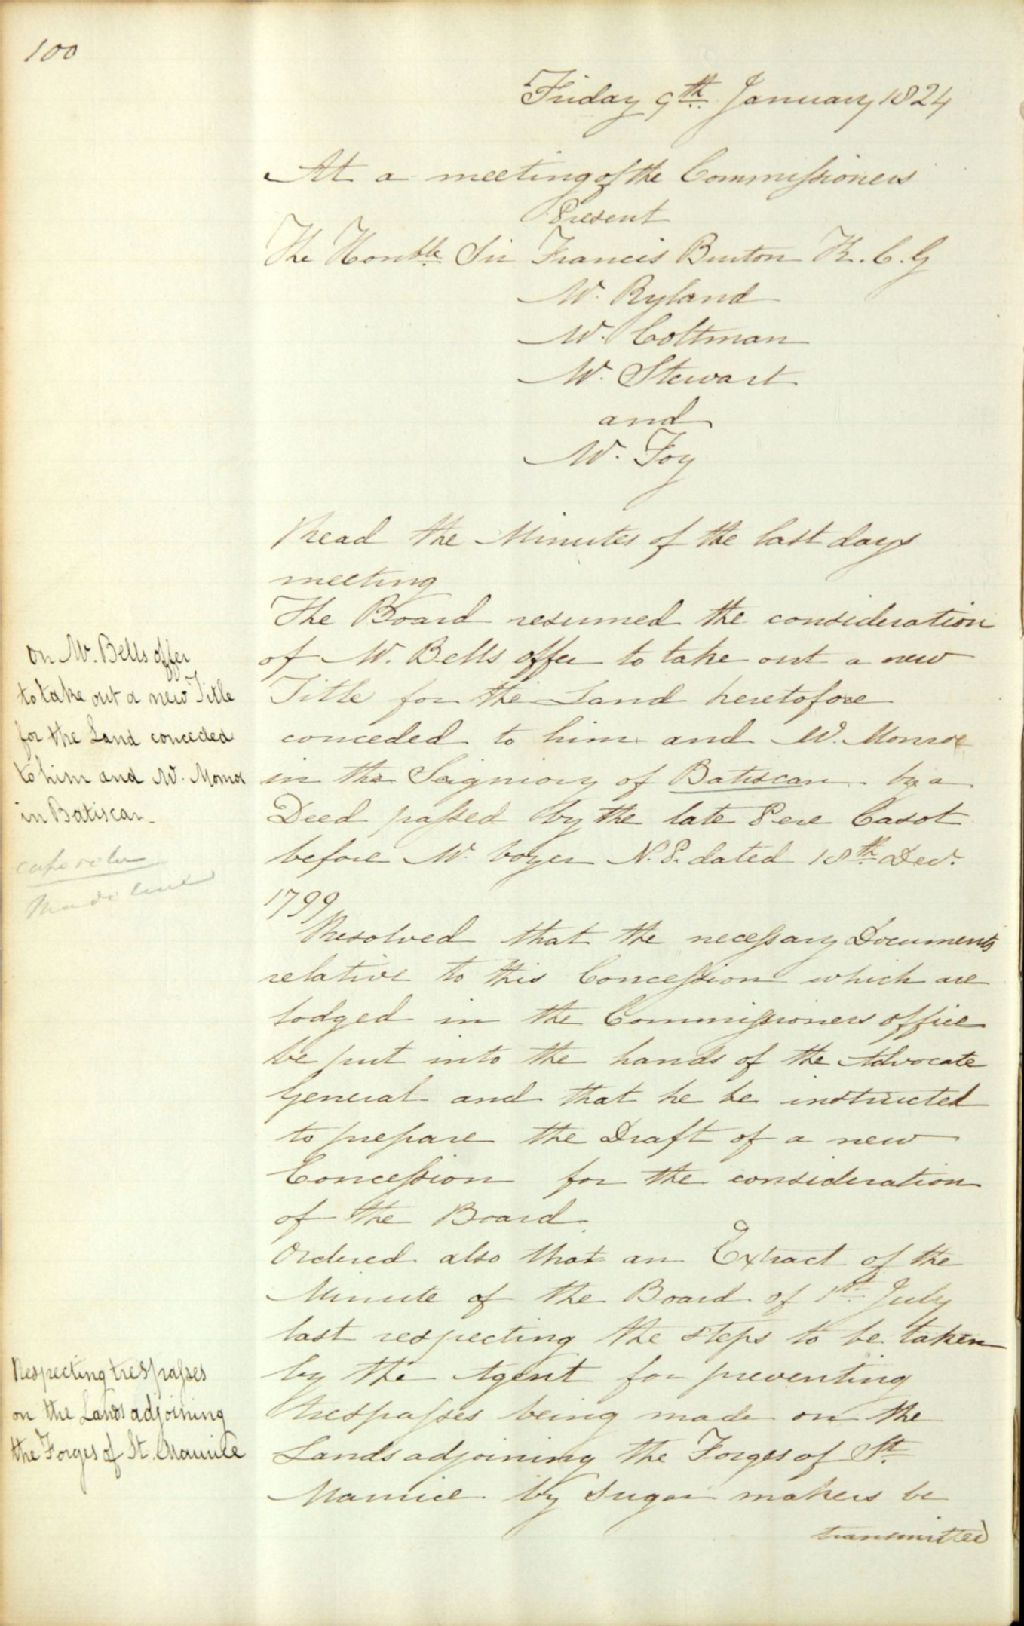 100
Friday 9th January 1824
At a meeting of the Commissioners
Present
The Honble Sir Francis Burton K. C. G
Mr. Ryland
Mr. Coltman
Mr. Stewart
and
Mr. Foy
Read the Minutes of the last days
meeting
The Board resumed the consideration
of Mr. Bells offer to take out a new
Title for the Land heretofore
conceded to him and Mr. Monroe
in the Seigniory of Batiscan by a
Deed passed by the late Pere Casot
before Mr. Voyer N.P. dated 18th Decr.
1799
Resolved that the necessary Documents
relative to this Concession which are
lodged in the Commissioners office
be put into the hands of the Advocate
General and that he be instructed
to prepare the Draft of a new
Concession for the consideration
of the Board
Ordered also that an Extract of the
Minute of the Board of 1st July
last respecting the steps to be taken
by the Agent for preventing
trespasses being made on the
Lands adjoining the Forges of St.
Maurice by sugar makers be
transmitted
On Mr. Bells offer
to take out a new Title
for the Land conceded
to him and Mr. Monroe
in Batiscan
Respecting trespasses
on the Lands adjoining
the Forges of St. Maurice